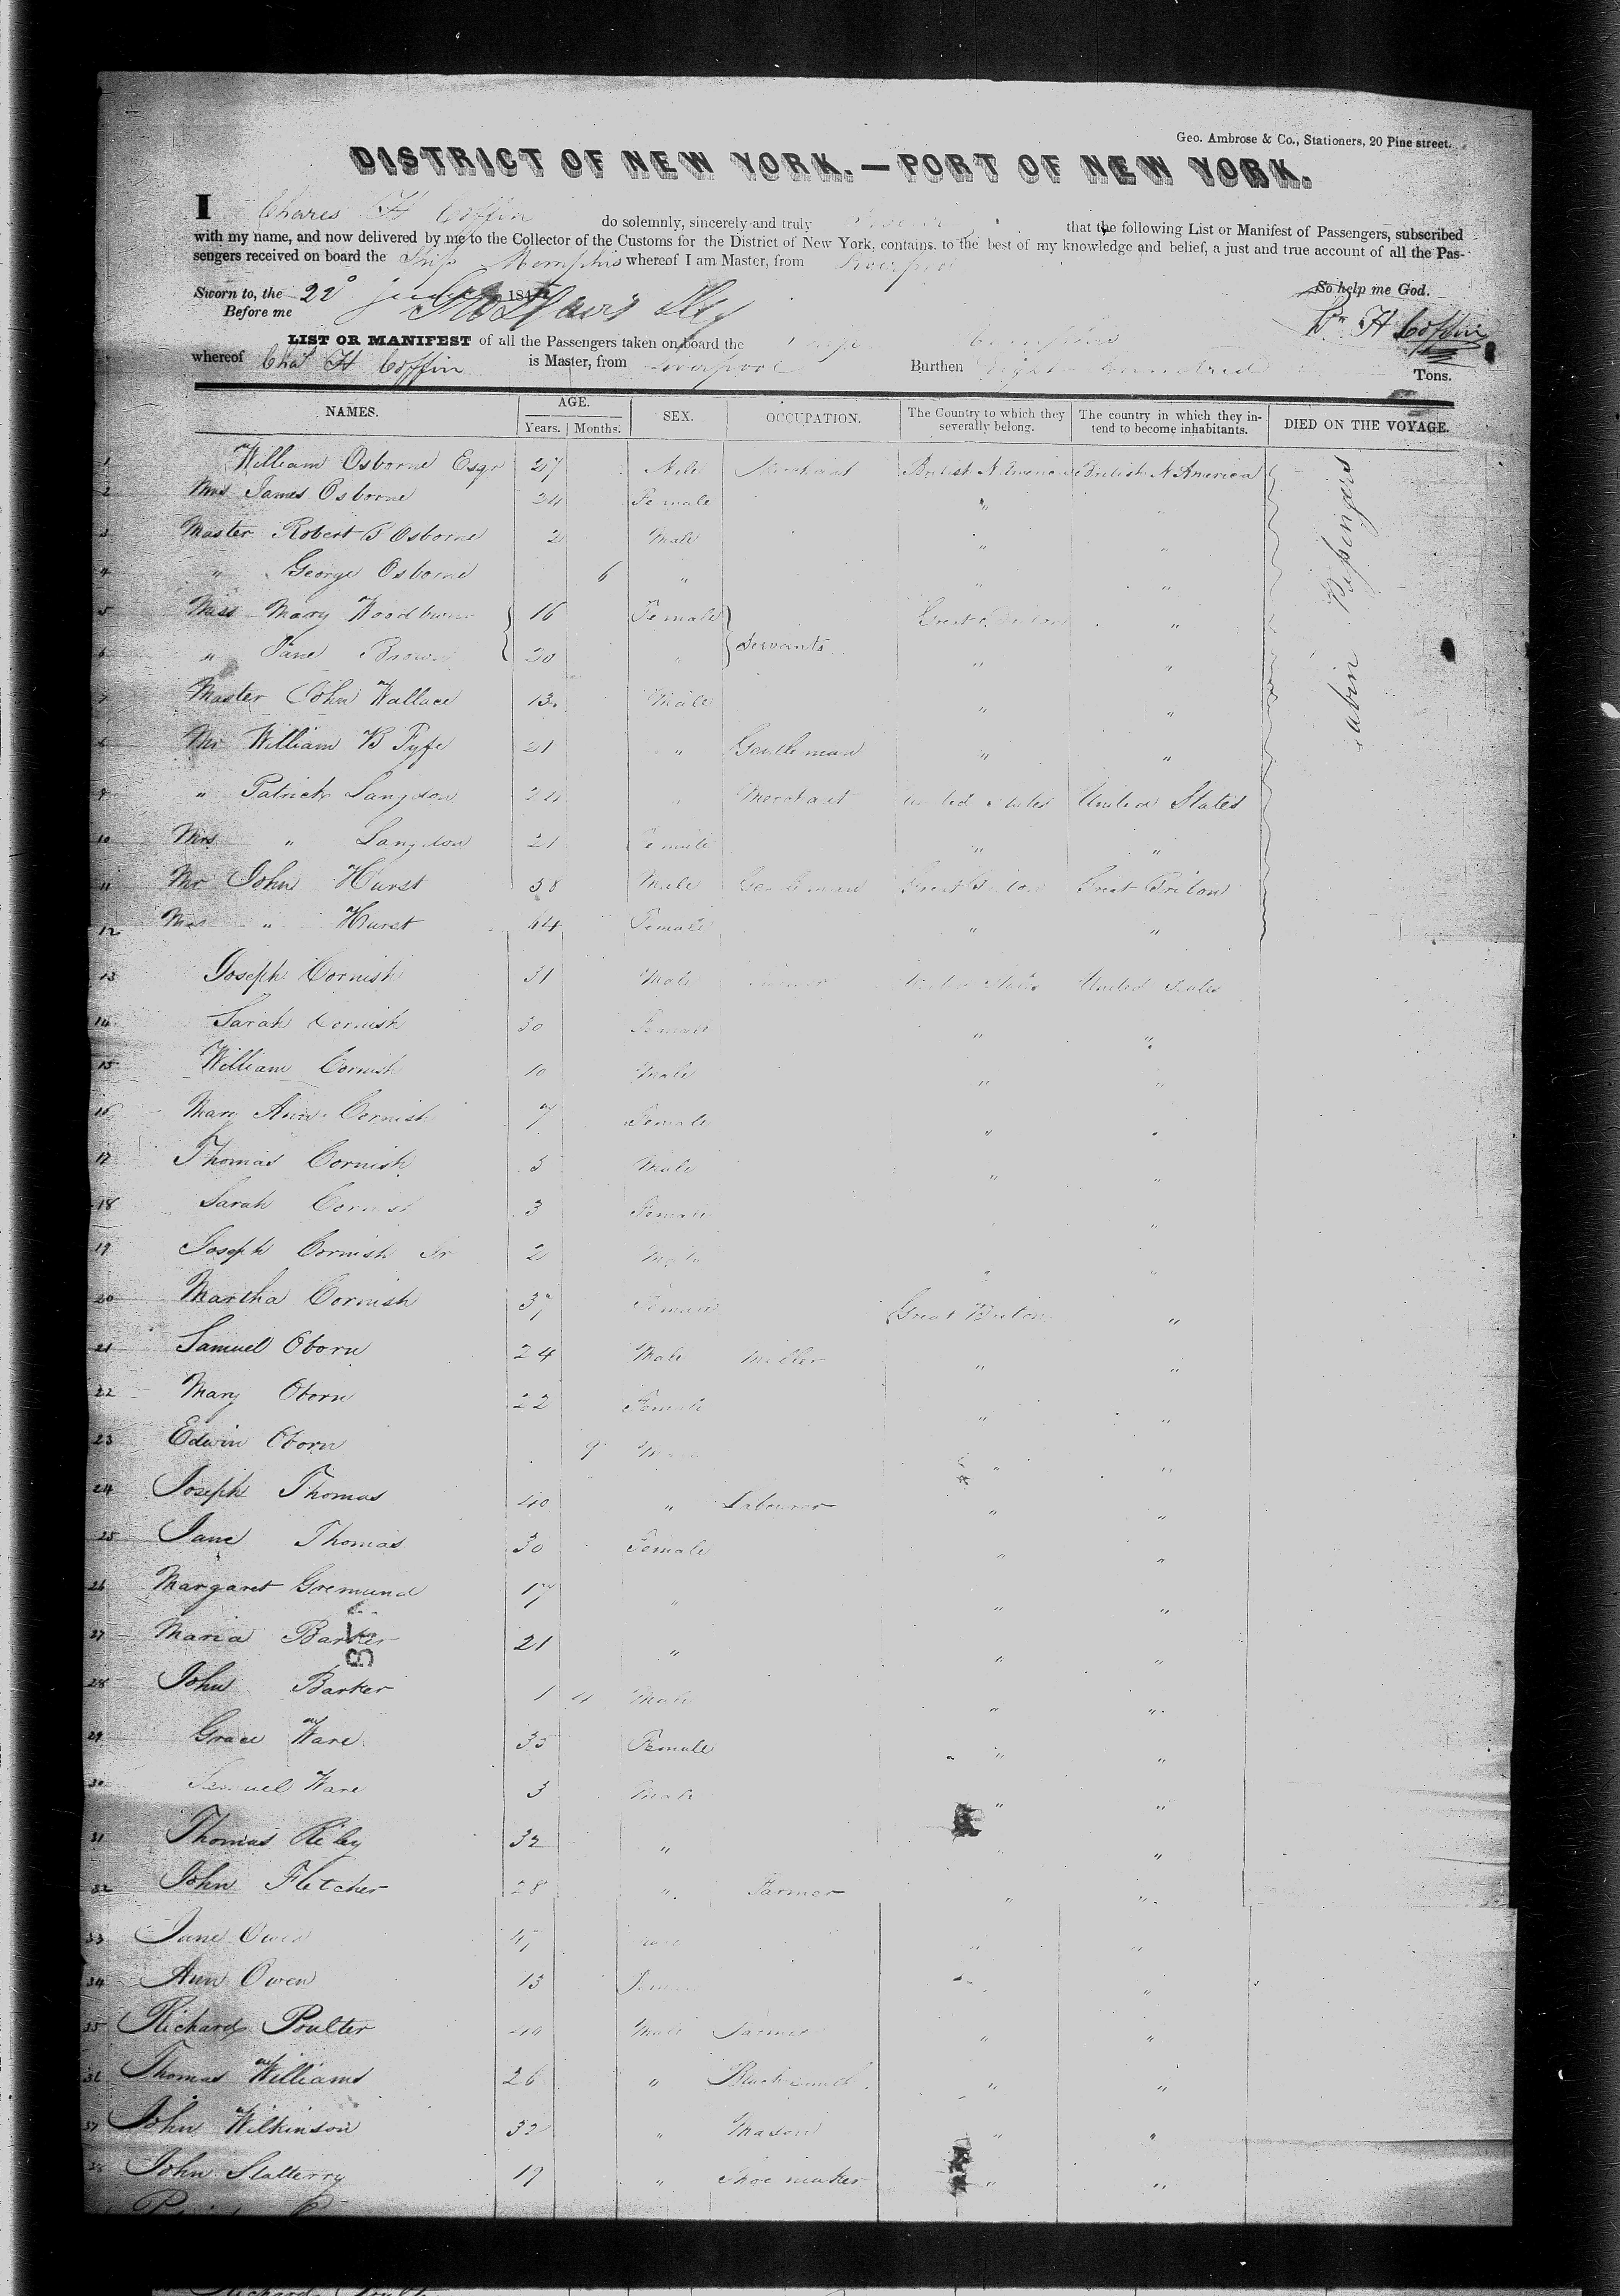 Geo. Ambrose & Co., Stationers, 20 Pine street.
DISTRICT OF NEW YORK.—PORT OF NEW YORK.
I Chares H Coffin do solemnly, sincerely and truly that the following List or Manifest of Passengers, subscribed
with my name, and now delivered by me to the Collector of the Customs for the District of New York, contains. to the best of my knowledge and belief, a just and true account of all the Pas-
sengers received on board the Ship Memphis whereof I am Master, from Liverpool
Sworn to, the 22d 184 So help me God.
Before me H Coffin
LIST OR MANIFEST of all the Passengers taken on board the Ship Memphis
whereof Chas H Coffin is Master, from Liverpool Burthen Eight Hundred Tons.
NAMES. AGE. SEX. OCCUPATION. The Country to which they severally belong. The country in which they in-tend to become inhabitants. DIED ON THE VOYAGE.
Years. Months.
1 William Osborne Esqr 27 Male Merchant British N America British N America
2 Mrs James Osborne 24 Female " "
3 Master Robert B Osborne 2 Male " "
4 " George Osborne 6 " " "
5 Miss Mary 16 Female Servants Great Britain "
6 " Jane Brown 20 " " "
7 Master John Wallace 13 Male " "
8 Mr William B Fyfe 21 " Gentleman " "
9 " Patrick Langdon 24 " Merchant United States United States
10 Mrs " Langdon 21 Female " "
11 Mr John Hurst 38 Male Gentleman Great Britan Great Britan
12 Mrs " Hurst 44 Female " "
Cabin
13 Joseph Cornish 31 Male United States United States
14 Sarah Cornish 30 Female " "
15 William Cornish 10 Male " "
16 Mary Ann Cornish 7 Female " "
17 Thomas Cornish 5 Male " "
18 Sarah Cornish 3 Female "
19 Joseph Cornish Jr 2 Male " "
20 Martha Cornish 37 Female Great Britan "
21 Samuel Oborn 24 Male Miller " "
22 Mary Oborn 22 Female " "
23 Edwin Oborn 9 Male " "
24 Joseph Thomas 40 " Labourer " "
25 Jane Thomas 30 Female " "
26 Margaret Gremund 17 " " "
27 Maria Barker 21 " " "
28 John Barker 1 4 Male " "
29 Grace Ware 35 Female " "
30 Samuel Ware 3 Male " "
31 Thomas Riley 32 " "
32 John Fletcher 28 " Farmer " "
33 Jane Owen 47 " "
34 Ann Owen 13 "
35 Richard Poulter Male Farmer " "
36 Thomas Williams 26 " Blacksmith " "
37 John Wilkinson 32 " Mason " "
38 John Slatterry 19 " Shoe maker " "